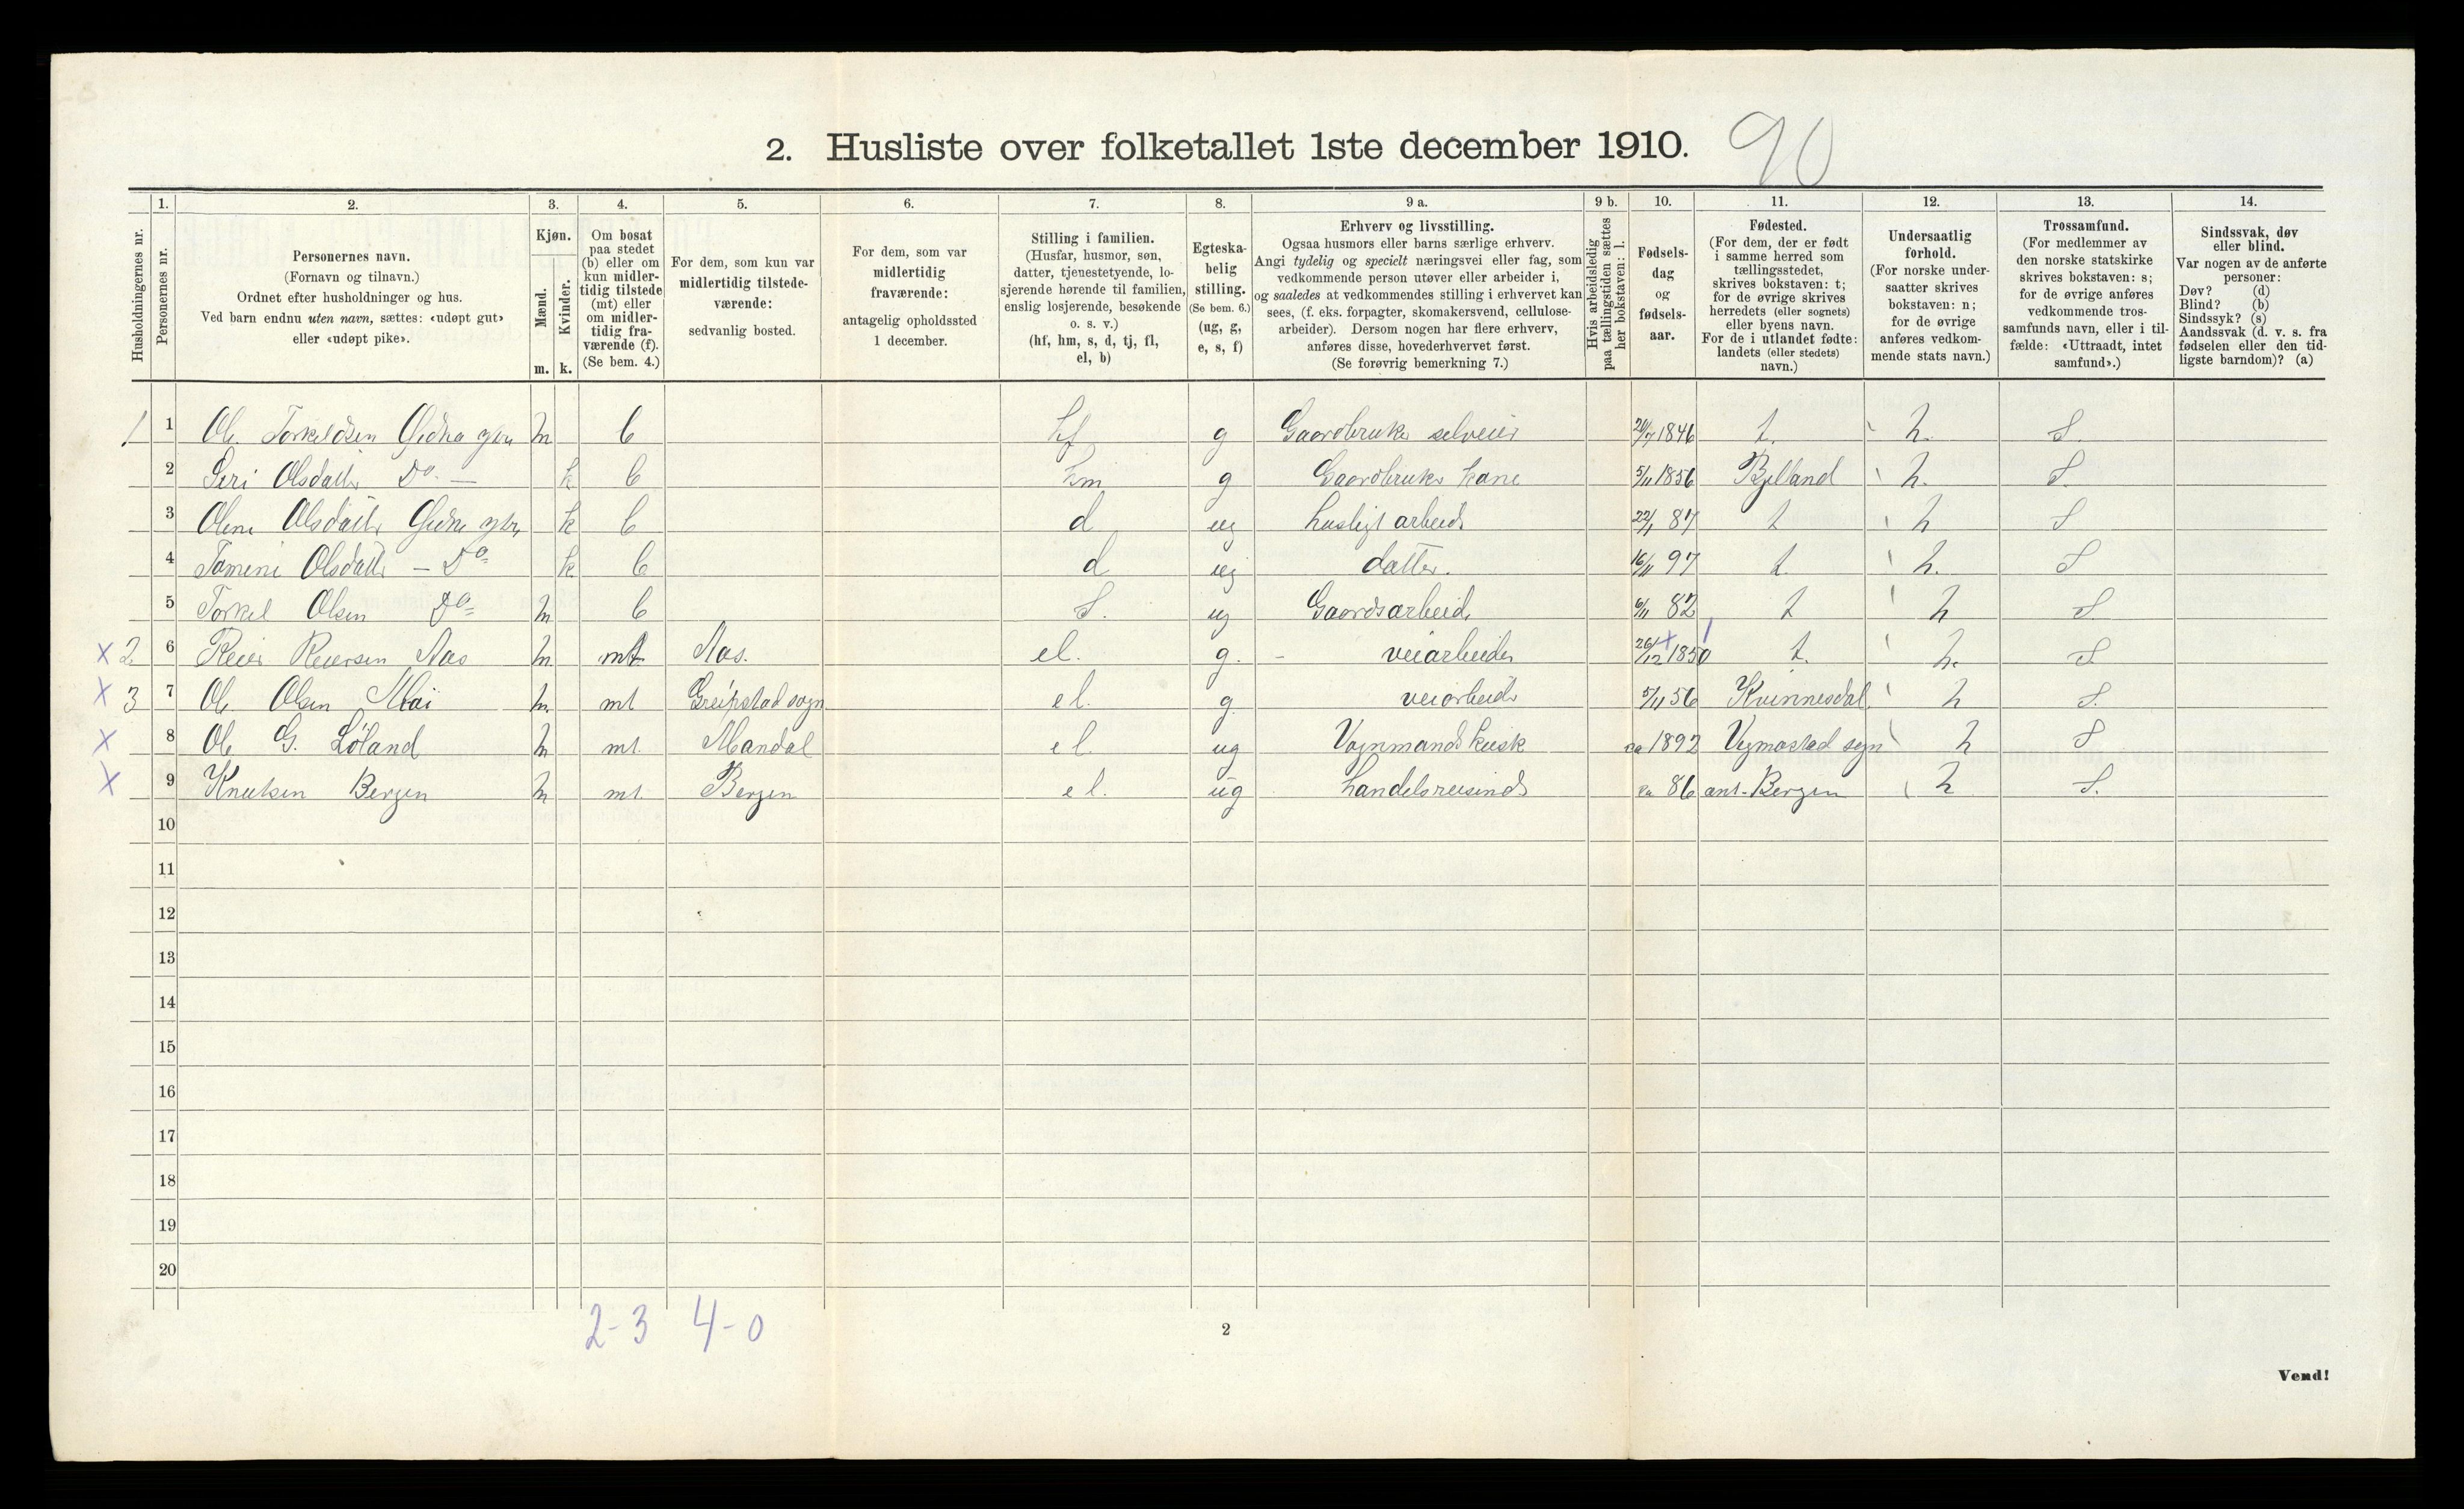 2. Husliste over folketallet 1ste december 1910. 90
Husholdningernes nr.
1. Personernes nr.
2. Personernes navn.
(Fornavn og tilnavn.)
Ordnet efter husholdninger og hus.
Ved barn endnu uten navn, sættes: «udøpt gut»
eller «udøpt pike».
3. Kjøn.
Mænd. m.
Kvinder. k.
4. Om bosat
paa stedet
(b) eller om
kun midler-
tidig tilstede
(mt) eller
om midler-
tidig fra-
værende (f).
(Se bem. 4.)
5. For dem, som kun var
midlertidig tilstede-
værende:
sedvanlig bosted.
6. For dem, som var
midlertidig
fraværende:
antagelig opholdssted
1 december.
7. Stilling i familien.
(Husfar, husmor, søn,
datter, tjenestetyende, lo-
sjerende hørende til familien,
enslig losjerende, besøkende
o. s. v.)
(hf, hm, s, d, tj, fl,
el, b)
8. Egteska-
belig
stilling.
(Se bem. 6.)
(ug, g,
e, s, f)
9 a. Erhverv og livsstilling.
Ogsaa husmors eller barns særlige erhverv.
Angi tydelig og specielt næringsvei eller fag, som
vedkommende person utøver eller arbeider i,
og saaledes at vedkommendes stilling i erhvervet kan
sees, (f. eks. forpagter, skomakersvend, cellulose-
arbeider). Dersom nogen har flere erhverv,
anføres disse, hovederhvervet først.
(Se forøvrig bemerkning 7.)
9 b. Hvis arbeidsledig
paa tællingstiden sættes
her bokstaven: l.
10. Fødsels-
dag
og
fødsels-
aar.
11. Fødested.
(For dem, der er født
i samme herred som
tællingsstedet,
skrives bokstaven: t;
for de øvrige skrives
herredets (eller sognets)
eller byens navn.
For de i utlandet fødte:
landets (eller stedets)
navn.)
12. Undersaatlig
forhold.
(For norske under-
saatter skrives
bokstaven: n;
for de øvrige
anføres vedkom-
mende stats navn.)
13. Trossamfund.
(For medlemmer av
den norske statskirke
skrives bokstaven: s;
for de øvrige anføres
vedkommende tros-
samfunds navn, eller i til-
fælde: «Uttraadt, intet
samfund».)
14. Sindssvak, døv
eller blind.
Var nogen av de anførte
personer:
Døv? (d)
Blind? (b)
Sindssyk? (s)
Aandssvak (d. v. s. fra
fødselen eller den tid-
ligste barndom)? (a)
1 1 Ole Torkeldsen m b hf g Gaardbruker selveier 20/7 1846 t. n. S.
2 Siri Olsdatter Do — k b hm g Gaardbrukr kone 5/11 1856 Bjelland n. S.
3 Olene Olsdatter k b d ug husligt arbeide 22/1 87 t n S
4 Tomine Olsdatter — Do k b d ug datter. 16/11 97 t. n. S
5 Torkel Olsen Do m b S. ug Gaardsarbeide 6/11 82 t n S.
x 2 6 Reier Reiersen Aas m mt Aas. el. g. - veiarbeider 26/12 1850 t. n. S
x 3 7 Ole Olsen Moi m mt Greipstad sogn el. g. veiarbeide 5/11 56 Kvinnesdal n S.
x 8 Ole G. Løland m mt. Mandal el. ug Vognmandskusk ca 1892 Vigmostad sogn n S
x 9 Knutsen Bergen m mt. Bergen el. ug handelsreisende ca 86 ant. Bergen n S.
10
11
12
13
14
15
16
17
18
19
20
2-3 4-0
2
Vend!